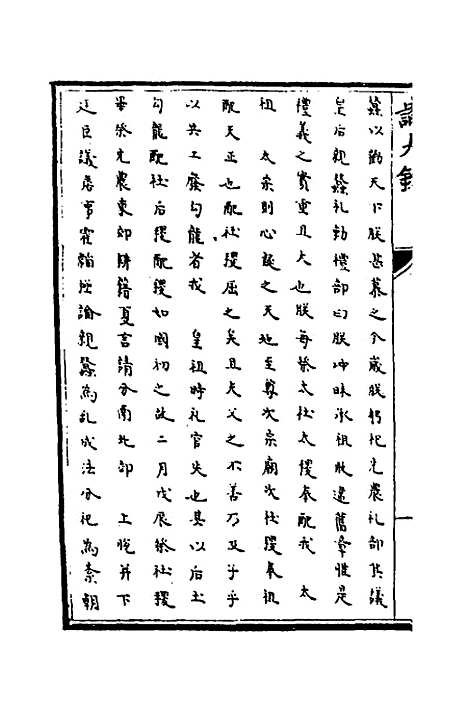 蠶以勸天下朕甚慕之今歲朕躬祀先農礼部其議
皇后親蠶礼勅禮部曰朕冲昧承祖敢違舊章惟是
禮義之貴重且大也朕每祭太社太稷奉配我 太
祖 太宗則心疑之天地至尊次宗廟次社稷奉祖
配天正也配社稷屈之矣且夫父之不善乃及子乎
以共工廢勾龍者我 皇祖時礼官失也其以后土
勾龍配社后稷配稷如國初之故二月戊辰祭社稷
畢祭先農東郊耕籍夏言請分南北郊 上悅并下
廷臣議詹事霍韜極論親蠶為乱成法分祀為紊朝